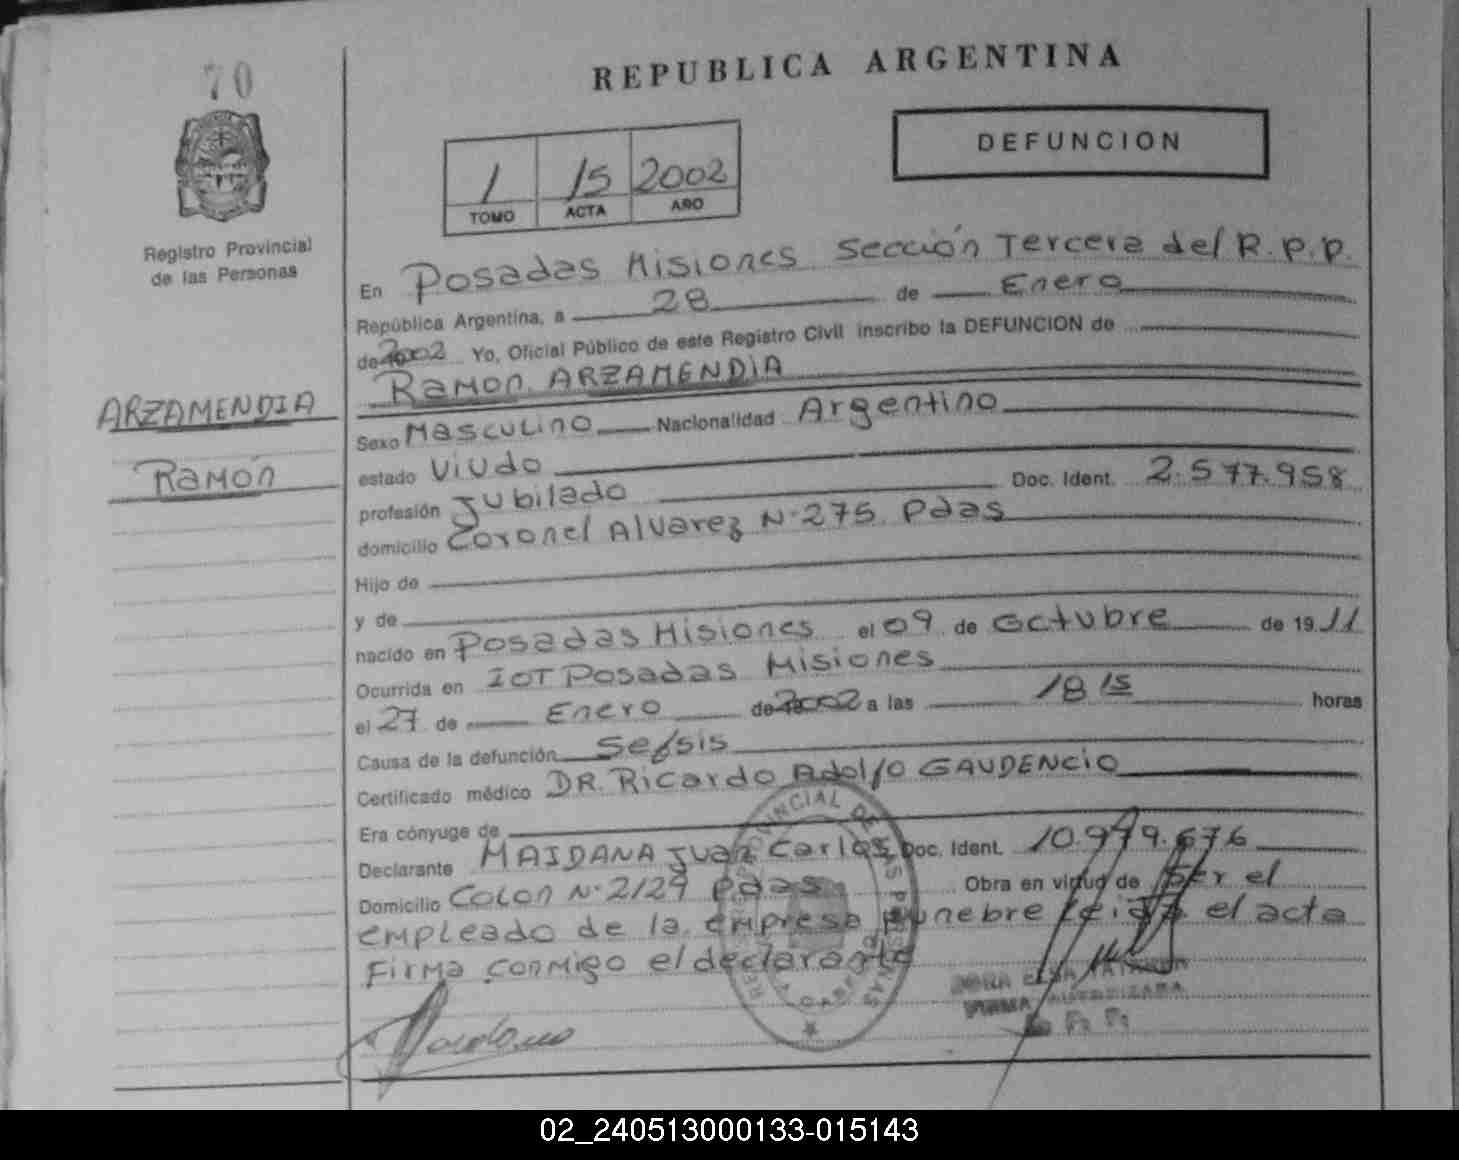 70
REPUBLICA ARGENTINA
DEFUNCION
1 15 2002
TOMO ACTA AÑO
Registro Provincial
de las Personas
En Posadas Misiones Sección Tercera del R.P.P.
República Argentina, a 28 de Enero
de 2002 Yo, Oficial Público de este Registro Civil inscribo la DEFUNCION de
Ramon ARZAMENDIA
ARZAMENDIA
Ramón
Sexo Masculino Nacionalidad Argentino
estado Viudo
profesión Jubilado Doc. Ident. 2.577.958
domicilio Coronel Alvarez N·275 Pdas
Hijo de
y de
nacido en Posadas Misiones el 09 de Octubre de 1911
Ocurrida en IOT Posadas Misiones
el 27 de Enero de 2002 a las 18 15 horas
Causa de la defunción Sepsis
Certificado médico DR. Ricardo Adolfo GAUDENCIO
Era cónyuge de
Declarante MAIDANA Juan Carlos Doc. Ident. 10.979.676
Domicilio Colon N·2129 Pdas Obra en virtud de Ser el
empleado de la empresa funebre leida el acta
Firma conmigo el declarante
FIRMA AUTORIZADA
02_240513000133-015143